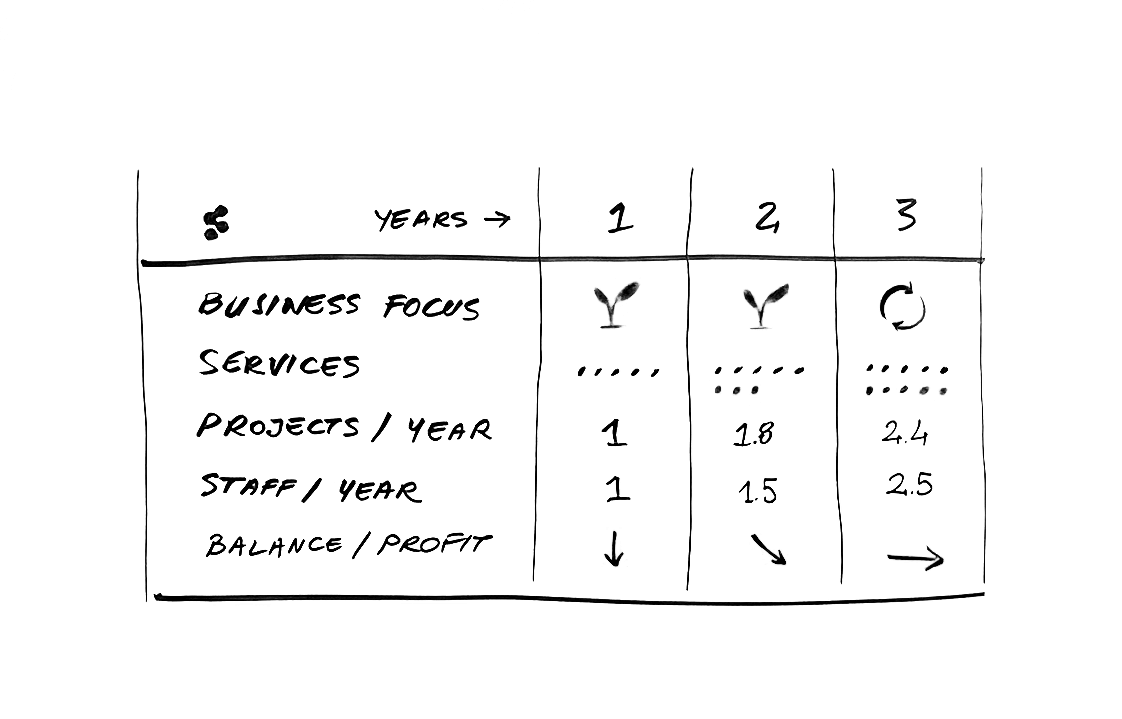 YEARS → 1 2 3
BUSINESS FOCUS
SERVICES
PROJECTS / YEAR 1 1.8 2.4
STAFF / YEAR 1 1.5 2.5
BALANCE / PROFIT ↓ ↘ →